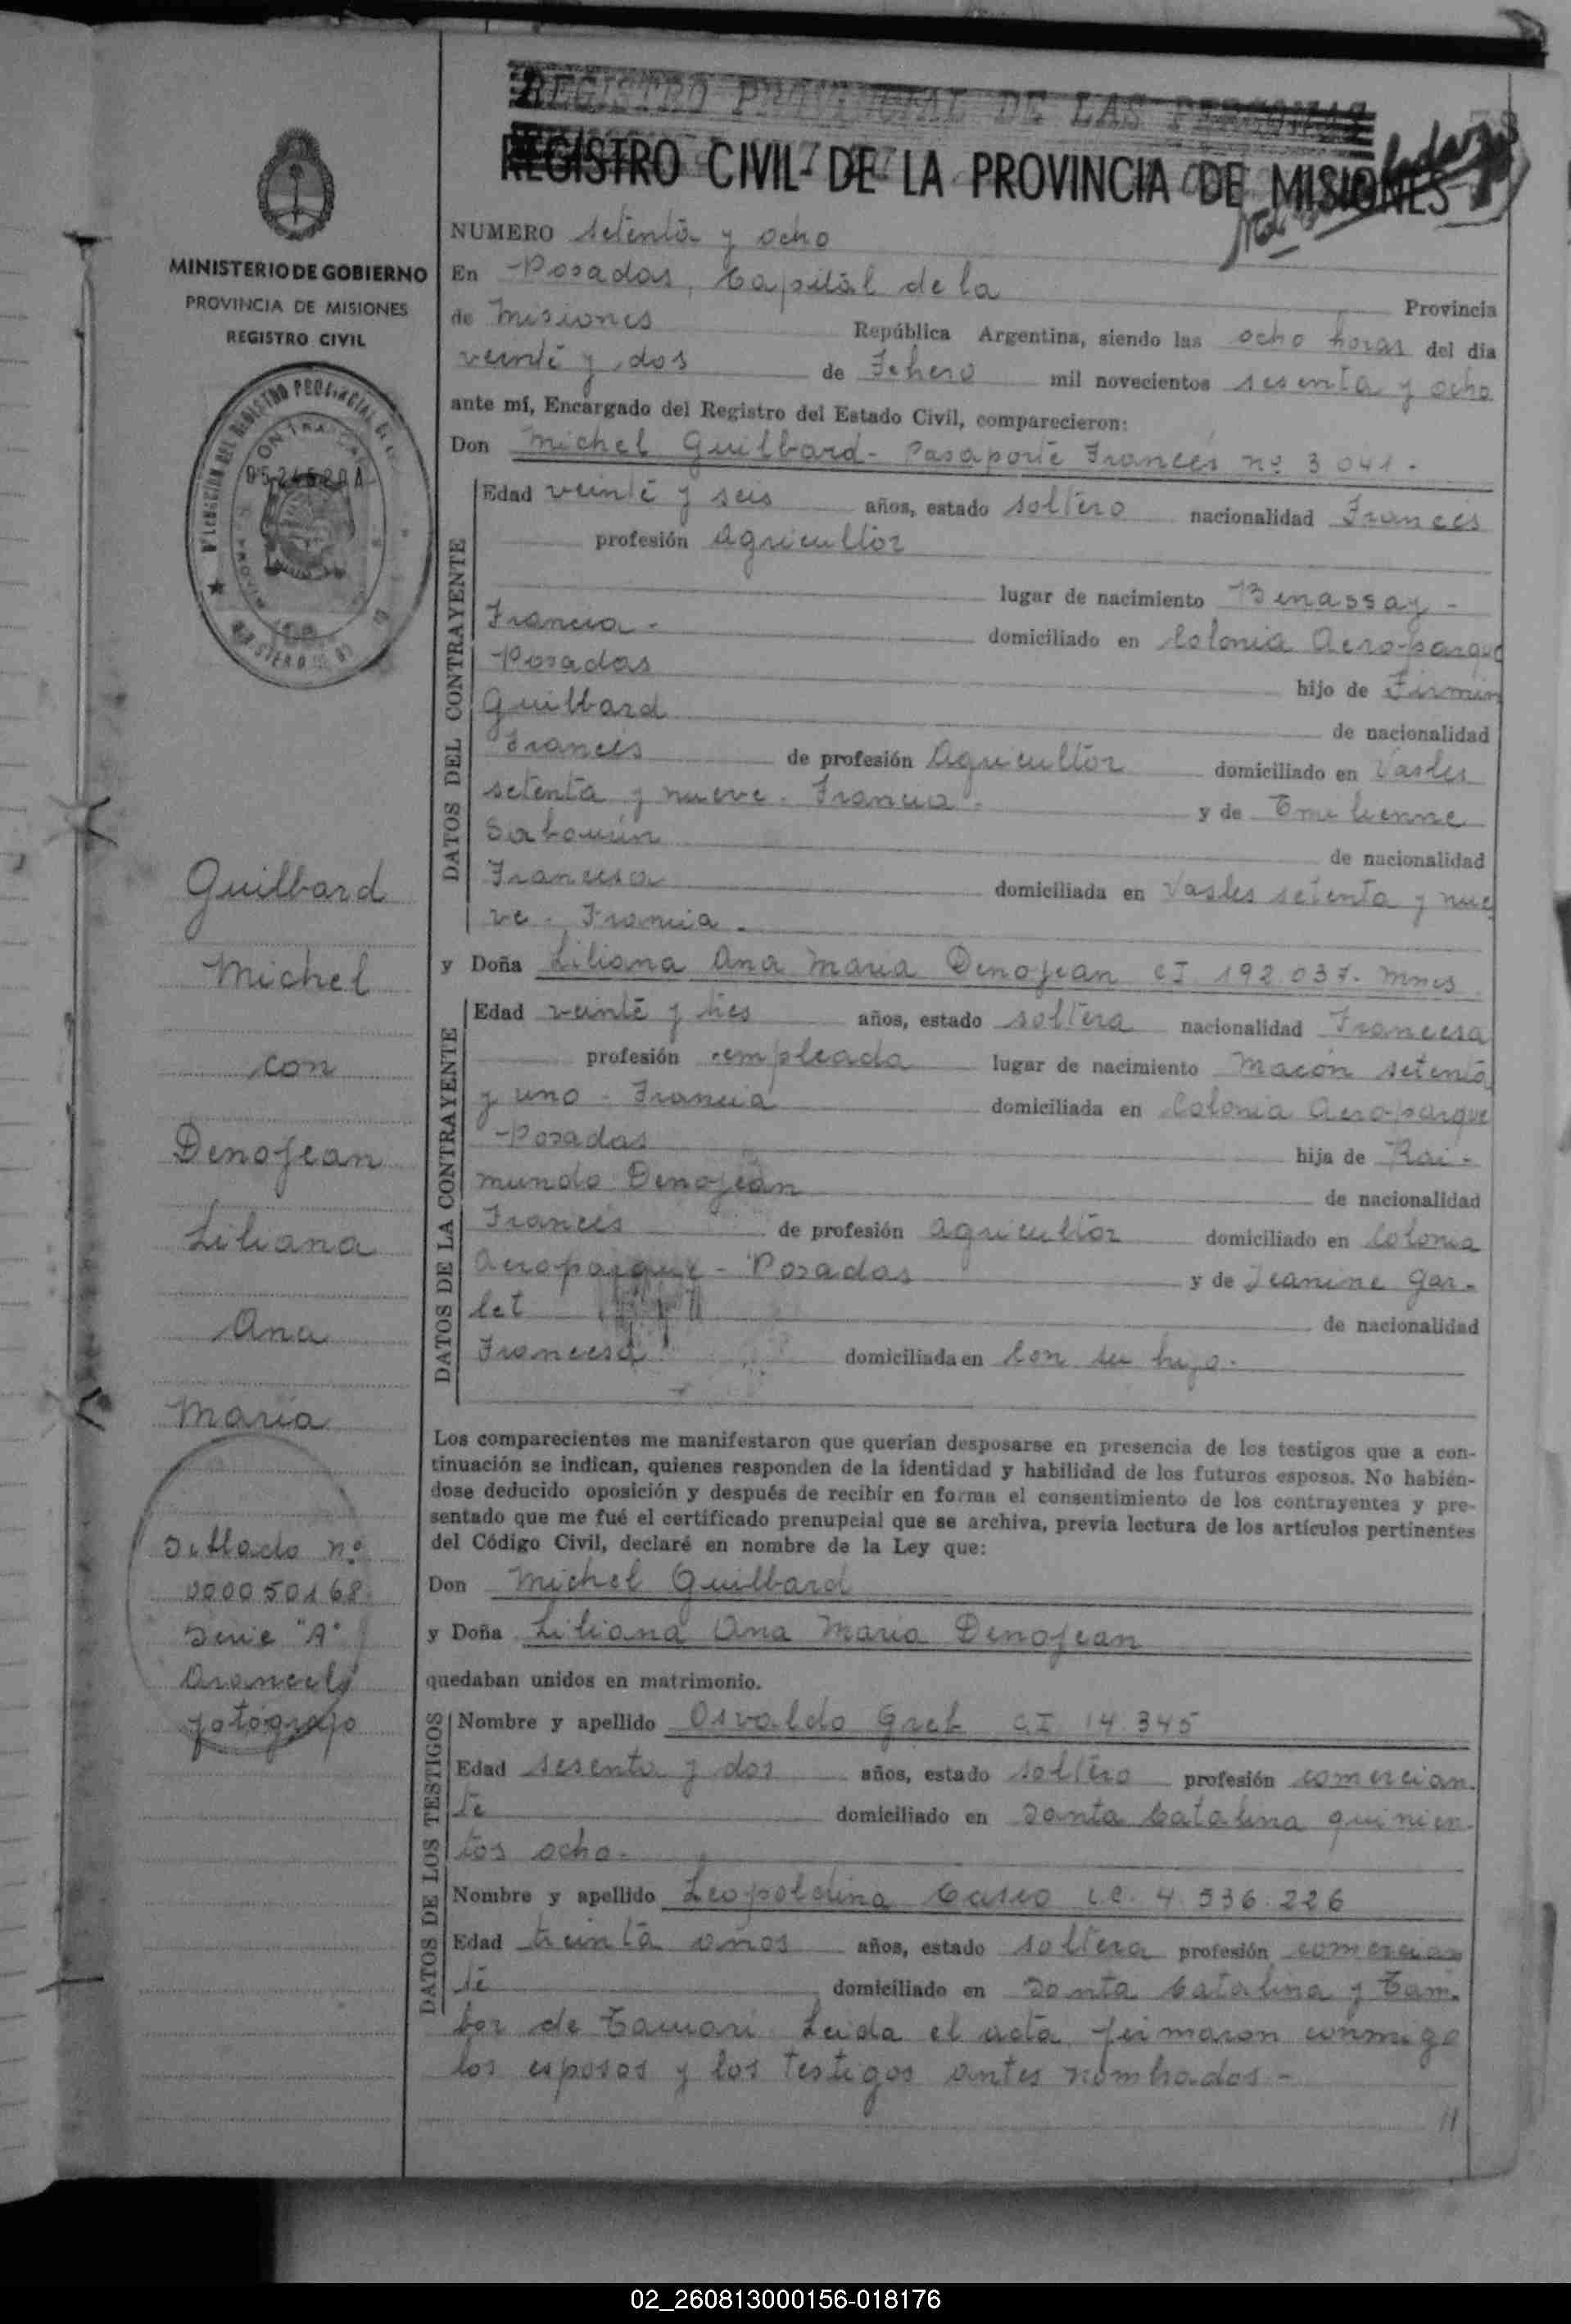 REGISTRO PROVINCIAL DE LAS PERSONAS
REGISTRO CIVIL DE LA PROVINCIA DE MISIONES
MINISTERIO DE GOBIERNO
PROVINCIA DE MISIONES
REGISTRO CIVIL
Guilbard
Michel
con
Denojean
Liliana
Ana
María
Sellado nº
000050168
Serie "A"
Arancel
fotógrafo
NUMERO setenta y ocho
En Posadas, Capital de la Provincia
de Misiones República Argentina, siendo las ocho horas del día
veinte y dos de Febero mil novecientos sesenta y ocho
ante mí, Encargado del Registro del Estado Civil, comparecieron:
Don Michel Guilbard - Pasaporte Francés nº 3041.
DATOS DEL CONTRAYENTE
Edad veinte y seis años, estado soltero nacionalidad Francés
profesión Agricultor
lugar de nacimiento Benassay -
Francia - domiciliado en Colonia Aeroparque
Posadas hijo de Firmin
Guilbard de nacionalidad
Francés de profesión Agricultor domiciliado en Vasles
setenta y nueve. Francia. y de Emilienne
Sabourin de nacionalidad
Francesa domiciliada en Vasles setenta y nue
ve - Francia.
y Doña Liliana Ana María Denojean CI 192.037. Mnes.
DATOS DE LA CONTRAYENTE
Edad veinte y tres años, estado soltera nacionalidad Francesa
profesión empleada lugar de nacimiento Macón setenta
y uno - Francia domiciliada en Colonia Aeroparque
Posadas hija de Rai-
mundo Denojean de nacionalidad
Francés de profesión agricultor domiciliado en Colonia
Aeroparque - Posadas y de Jeanine Gar-
let de nacionalidad
Francesa domiciliada en Con su hija.
Los comparecientes me manifestaron que querían desposarse en presencia de los testigos que a con-
tinuación se indican, quienes responden de la identidad y habilidad de los futuros esposos. No habién-
dose deducido oposición y después de recibir en forma el consentimiento de los contrayentes y pre-
sentado que me fué el certificado prenupcial que se archiva, previa lectura de los artículos pertinentes
del Código Civil, declaré en nombre de la Ley que:
Don Michel Guilbard
y Doña Liliana Ana María Denojean
quedaban unidos en matrimonio.
DATOS DE LOS TESTIGOS
Nombre y apellido Osvaldo Greb C.I 14.345
Edad sesenta y dos años, estado soltero profesión comercian-
te domiciliado en Santa Catalina quinien-
tos ocho.
Nombre y apellido Leopoldina L.C. 4.536.226
Edad treinta años años, estado soltera profesión comercian
te domiciliado en Santa Catalina y Tam-
bor de Tacuarí. Leida el acta firmaron conmigo
los esposos y los testigos antes nombrados -
02_260813000156-018176